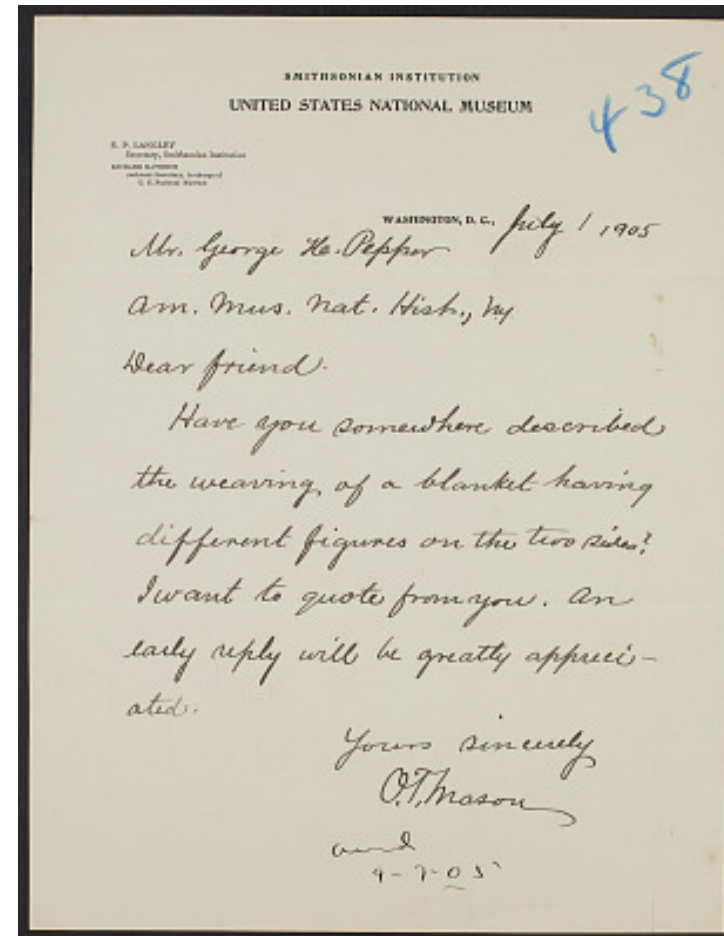 SMITHSONIAN INSTITUTION
UNITED STATES NATIONAL MUSEUM
438
S. P. LANGLEY
Secretary, Smithsonian Institution
RICHARD RATHBUN
Assistant Secretary, in charge of
U. S. National Museum
WASHINGTON, D. C., July 1 1905
Mr. George H. Pepper
Am. Mus. Nat. Hist., NY
Dear friend.
Have you somewhere described
the weaving of a blanket having
different figures on the two sides?
I want to quote from you. An
early reply will be greatly appreci-
ated.
Yours sincerely
O.T. Mason